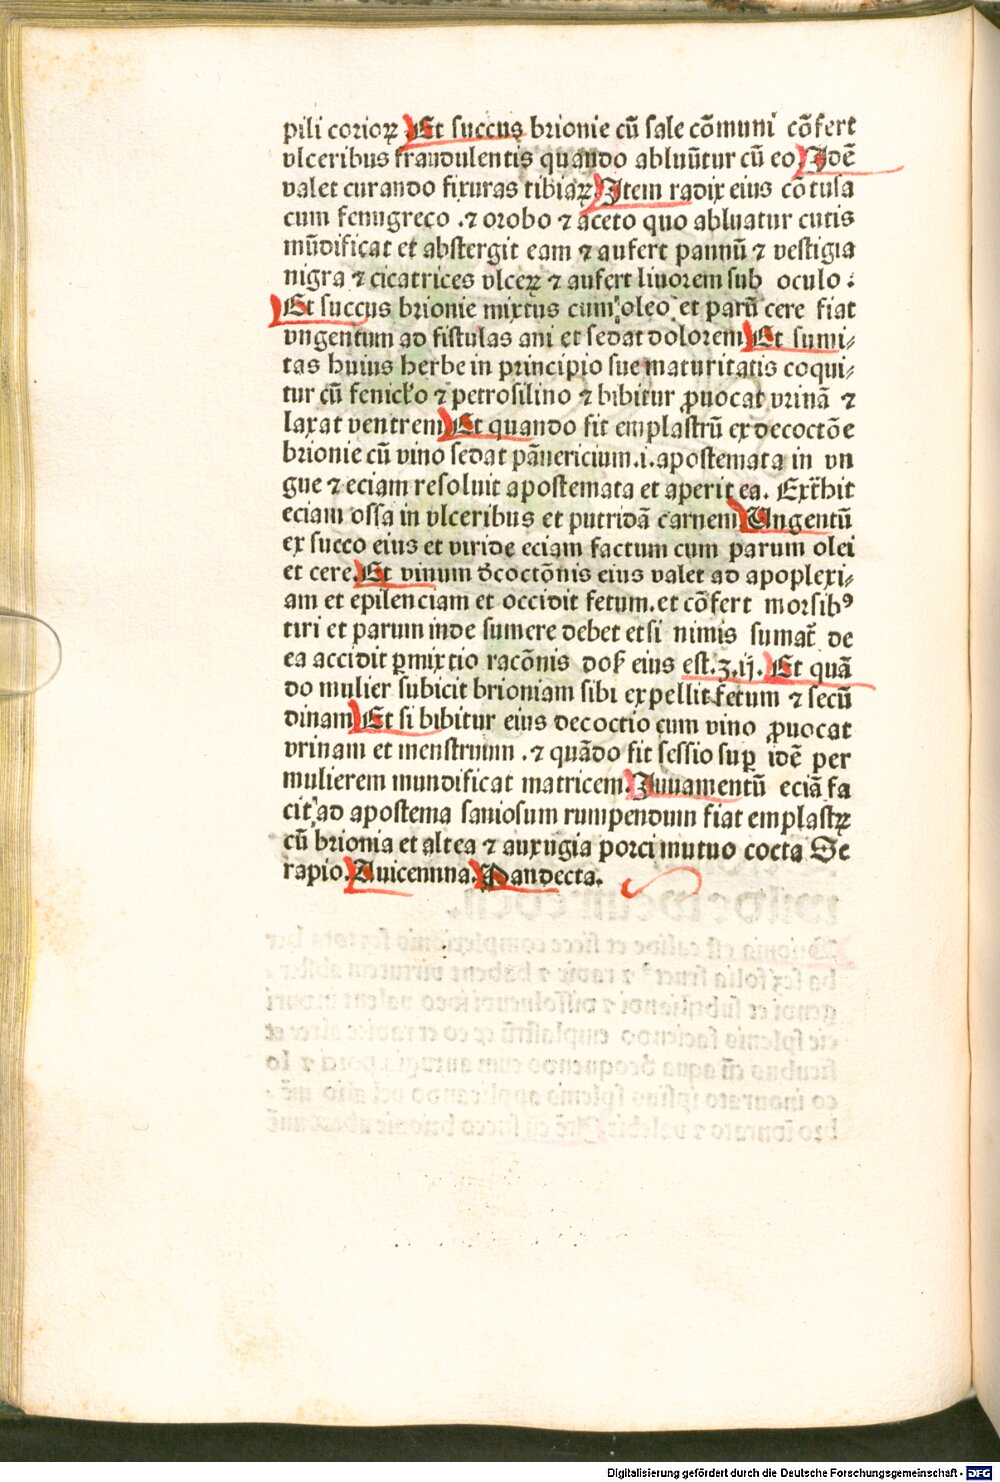 pili corioꝝ Et succus brionie cū sale cōmuni cōfert
vlceribus fraudulentis quando abluūtur cū eo Idē
valet curando fixuras tibiaꝝ Item radix eius cōtusa
cum fenugreco .⁊ orobo ⁊ aceto quo abluatur cutis
mūdificat et abstergit eam ⁊ aufert pannū ⁊ vestigia
nigra ⁊ cicatrices vlceꝝ ⁊ aufert liuorem sub oculo :
Et succus brionie mixtus cum oleo et parū cere fiat
vngentum ad fistulas ani et sedat dolorem Et sumi⸗
tas huius herbe in principio sue maturitatis coqui⸗
tur cū fenicľo ⁊ petrosilino ⁊ bibitur ꝓuocat vrinā ⁊
laxat ventrem Et quando fit emplastrū ex decoctōe
brionie cū vino sedat pānericium.i.apostemata in vn
gue ⁊ eciam resoluit apostemata et aperit ea. Extͬhit
eciam ossa in vlceribus et putridā carnem Vngentū
ex succo eius et viride eciam factum cum parum olei
et cere. Et vinum dͤcoctōnis eius valet ad apoplexi⸗
am et epilenciam et occidit fetum.et cōfert morsibꝰ
tiri et parum inde sumere debet et si nimis sumat̄ de
ea accidit ꝑmixtio racōnis dos̄ eius est.ʒ.ij. Et quā
do mulier subicit brioniam sibi expellit fetum ⁊ secū
dinam Et si bibitur eius decoctio cum vino ꝓuocat
vrinam et menstruum .⁊ quādo fit sessio suꝑ idē per
mulierem mundificat matricem. Iuuamentū eciā fa
cit ad apostema saniosum rumpendum fiat emplastꝝ
cū brionia et altea ⁊ auxugia porci mutuo cocta Se
rapio. Auicenna. Pandecta.
Digitalisierung gefördert durch die Deutsche Forschungsgemeinschaft - DFG